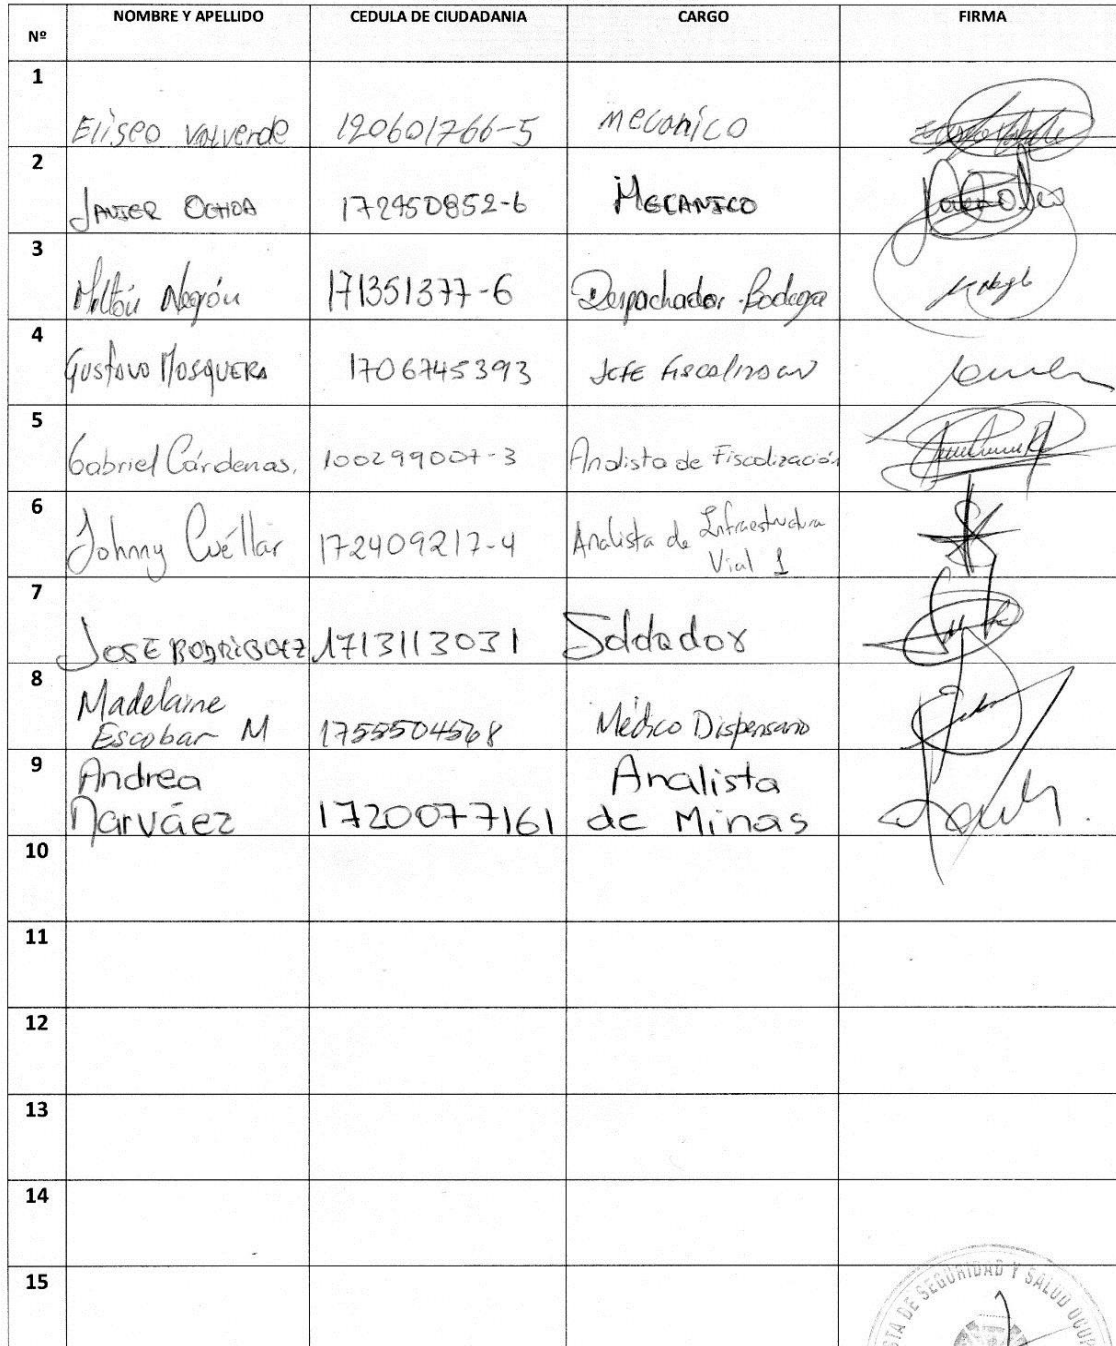 Nº NOMBRE Y APELLIDO CEDULA DE CIUDADANIA CARGO FIRMA
1 Eliseo Valverde 120601766-5 mecanico
2 JAVIER OCHOA 172950852-6 MECANICO
3 Miltón Negrón 171351377-6 Despachador Bodega
4 Gustavo MOSQUERA 1706745393 JEFE
5 Gabriel Cárdenas. 100299007-3 Analista de Fiscalización
6 Johnny Cuéllar 172409217-4 Analista de Infraestructura
Vial 1
7 JOSE RODRIGUEZ 1713113031 Soldador
8 Madelaine
Escobar M 1755504568 Médico Dispensario
9 Andrea Analista
Narváez 1720077161 de Minas
10
11
12
13
14
15
STA DE SEGURIDAD Y SALUD OCUP